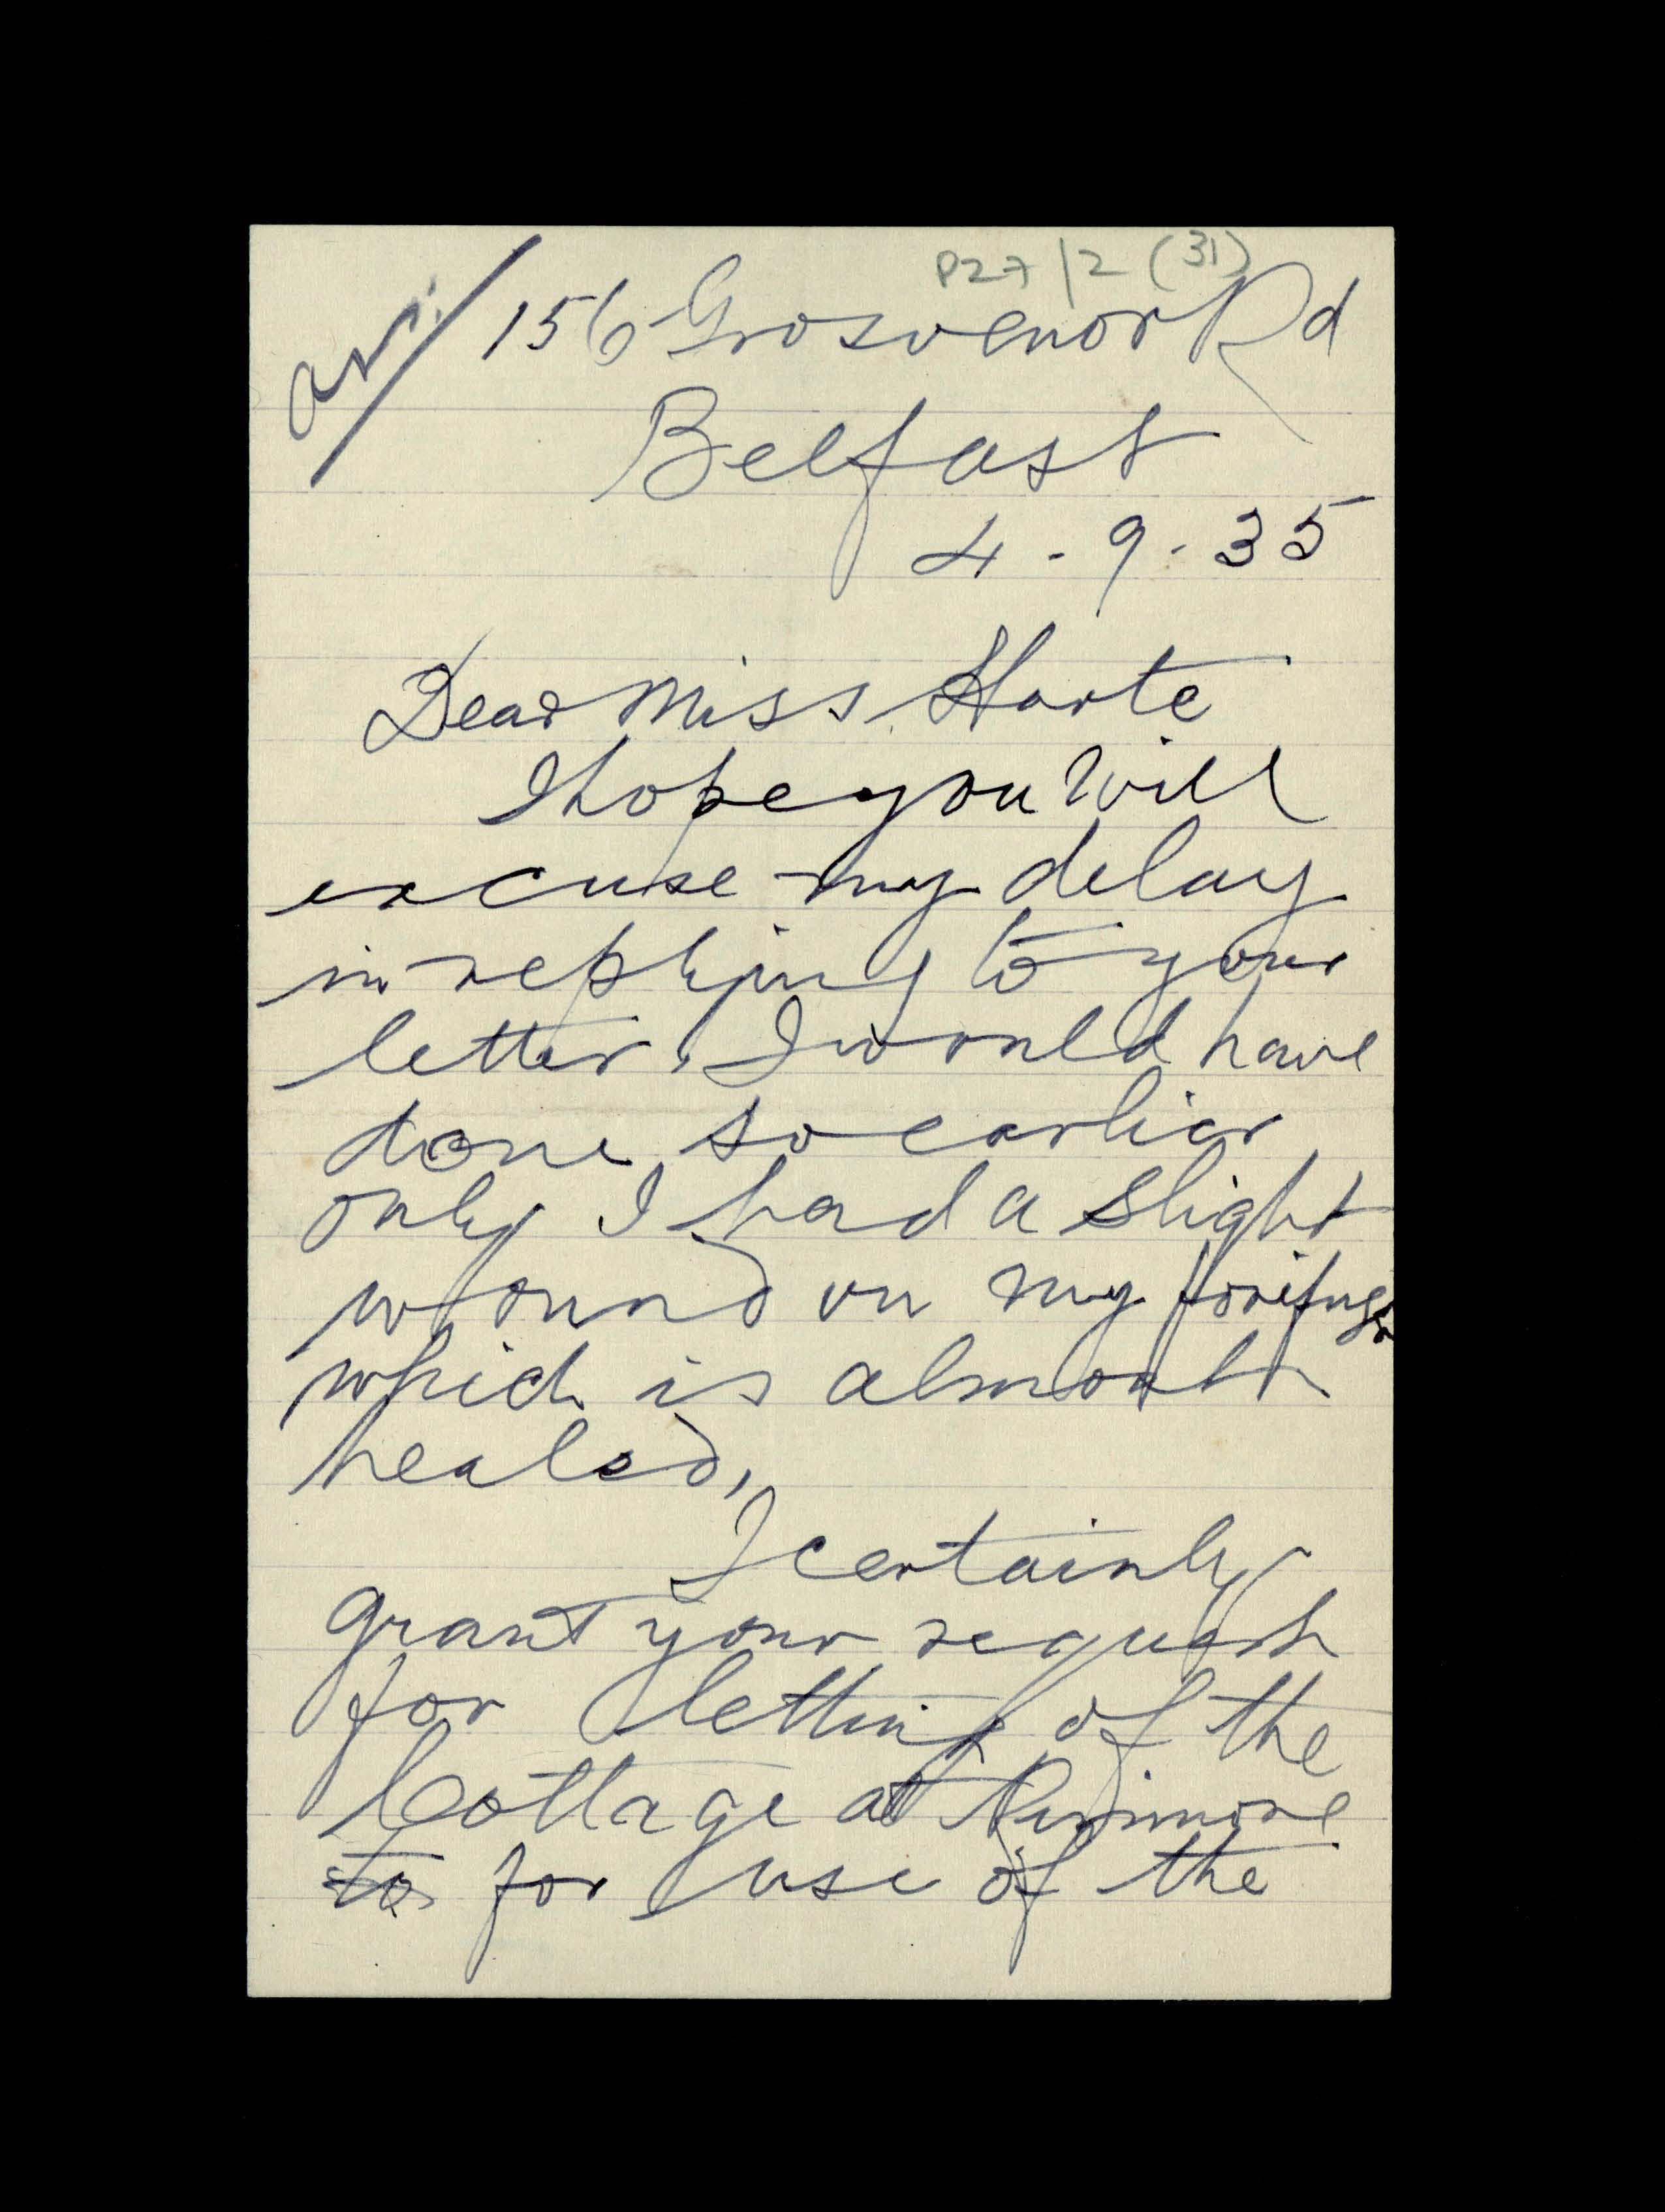 P27/2 (31)
ans. 156 Grosvenor Rd
Belfast
4 - 9 - 35
Dear Miss Harte
I hope you will
excuse my delay
in replying to your
letter, I would have
done so earlier
only I had a slight
wound on my forefinger
which is almost
healed,
I certainly
grant your request
for letting of the
Cottage at
to for use of the